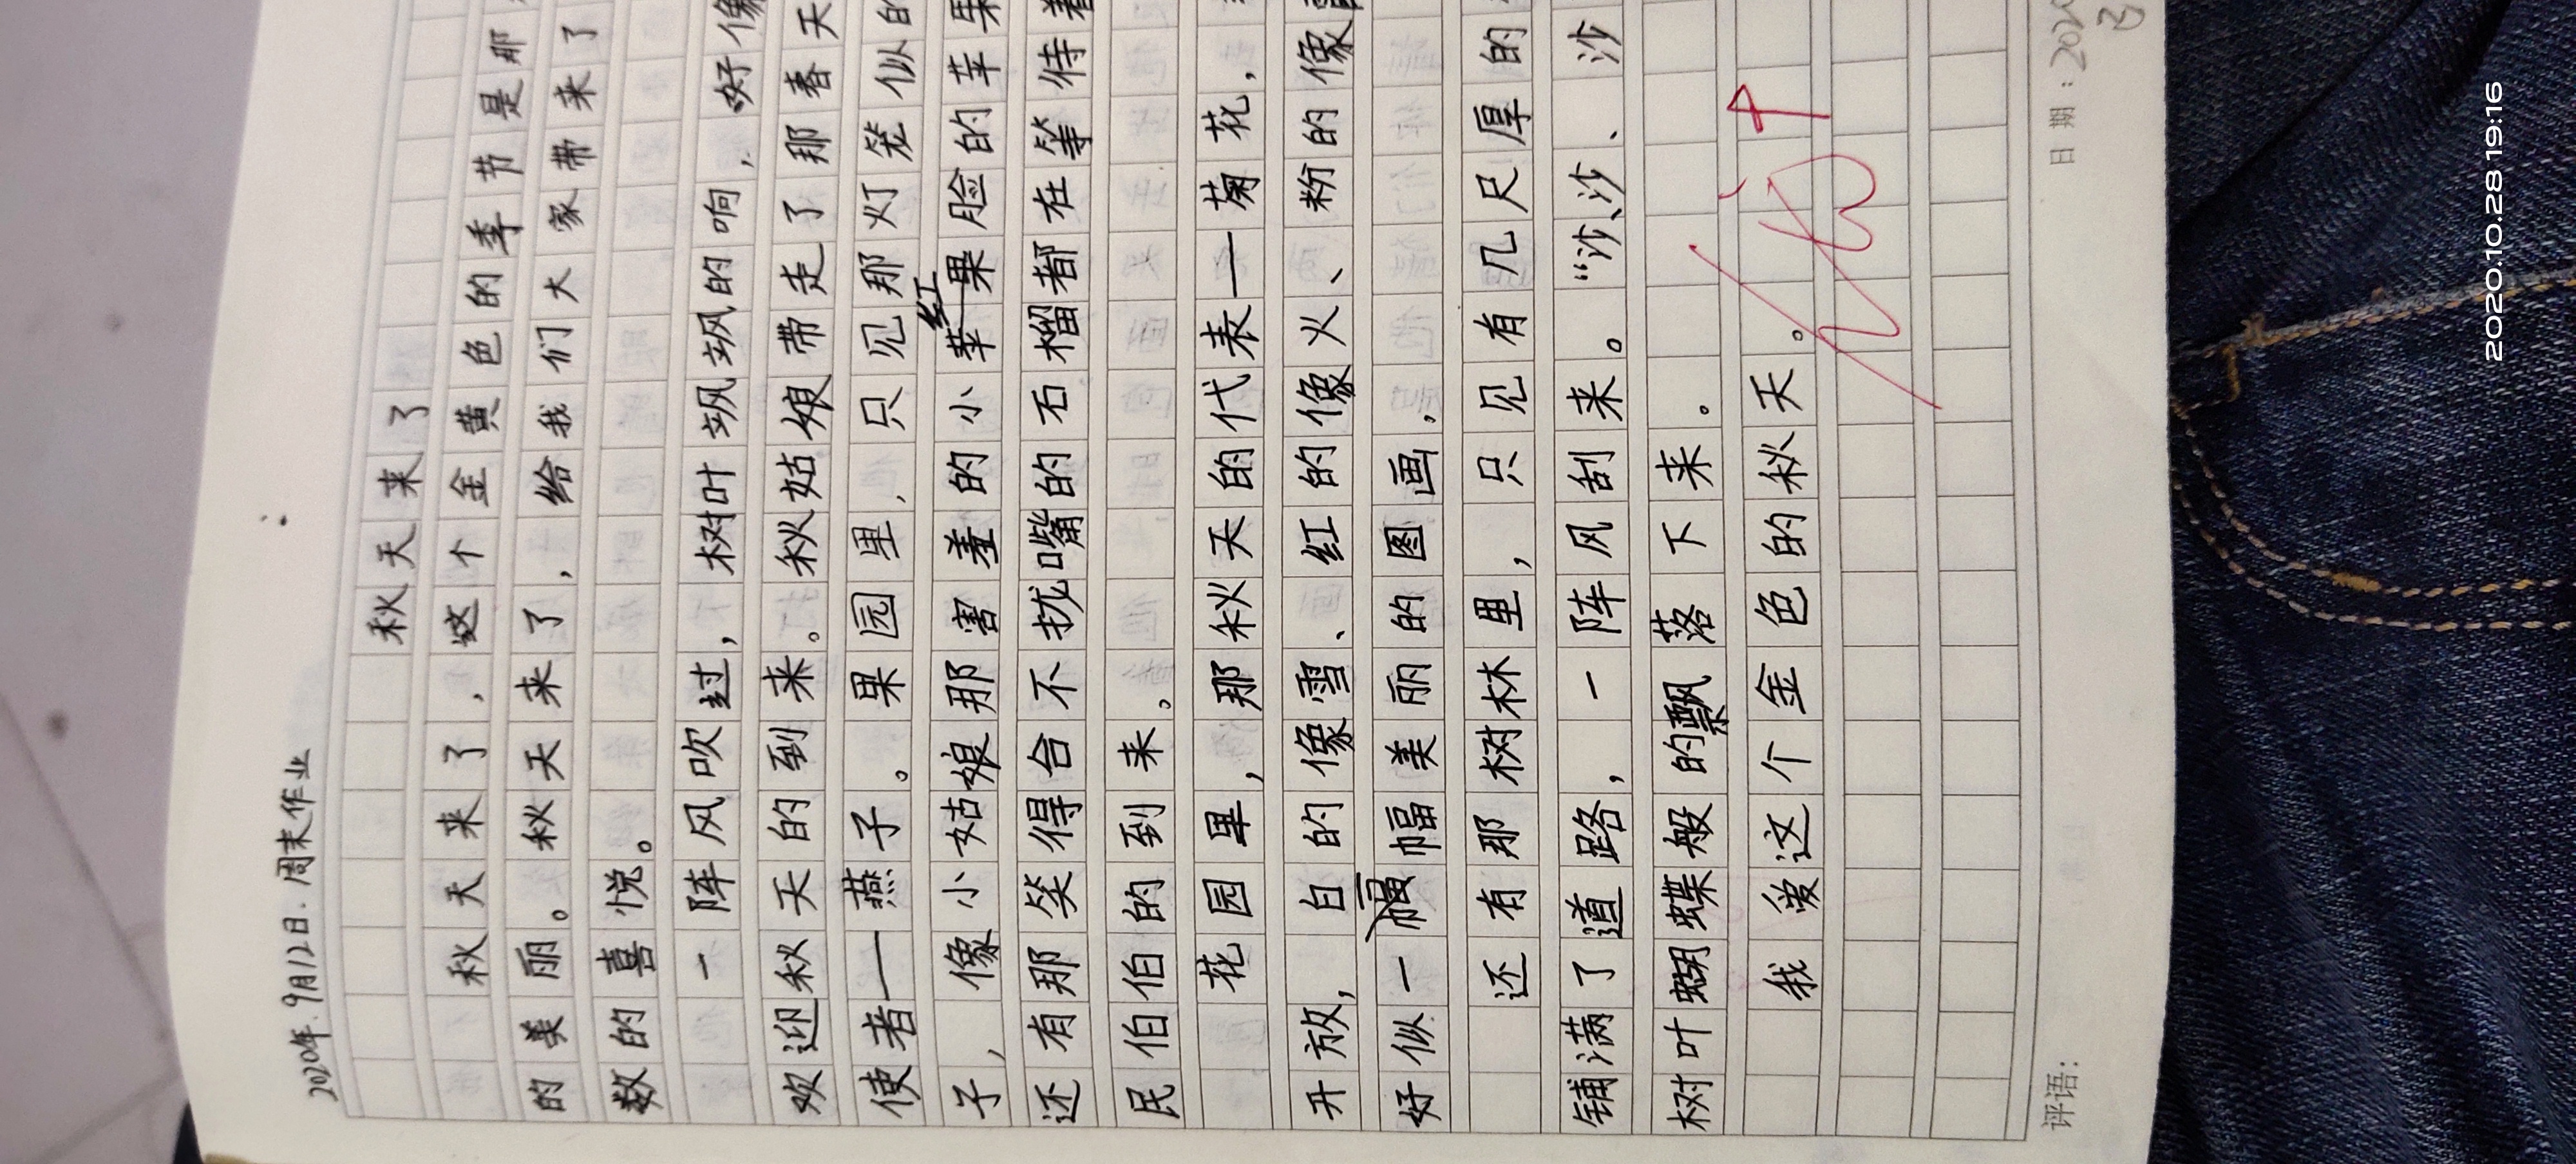 2020年.9月12日.周末作业
秋天来了
秋天来了,这个金黄色的季节是那
的美丽。秋天来了,给我们大家带来了
数的喜悦。
一阵风吹过,树叶飒飒的响,好像
欢迎秋天的到来。秋姑娘带走了那春天
使者—燕子。果园里,只见那灯笼似的
子,像小姑娘那害羞的小苹果红脸的苹果
还有那笑得合不拢嘴的石榴都在等待着
民伯伯的到来。
花园里,那秋天的代表—菊花,
开放,白的像雪、红的像火、粉的像
好似一幅幅美丽的图画。
还有那树林里,只见有几尺厚的
铺满了道路,一阵风刮来。“沙、沙、沙
树叶蝴蝶般的飘落下来。
我爱这个金色的秋天。
评语:
日期:202
2020.10.28 19:16